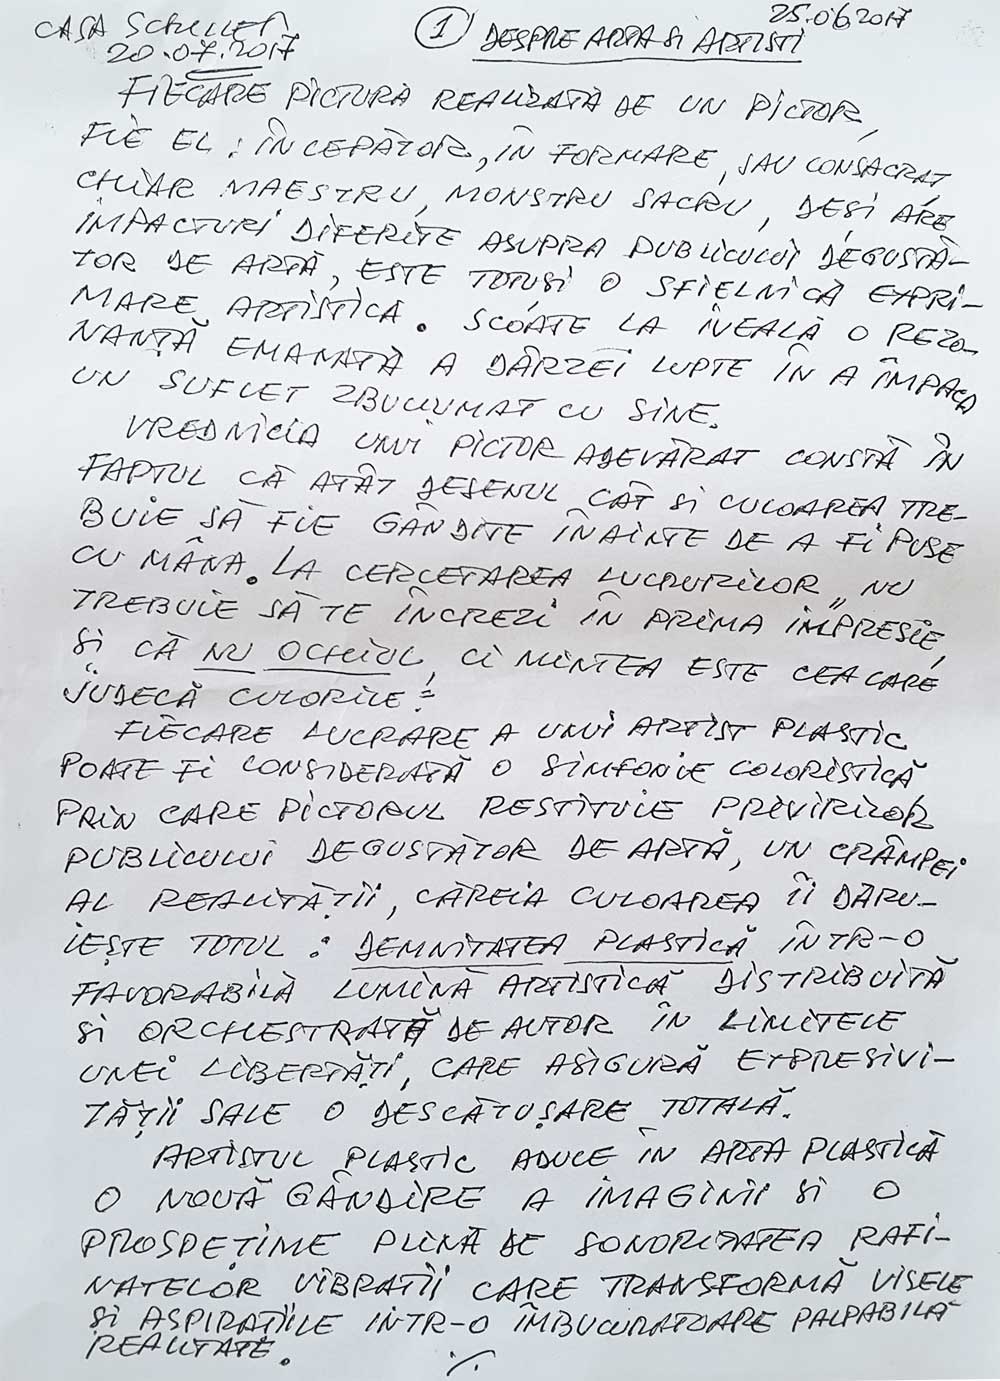 CASA SCHILLER
25.06.2017
20.07.2017
1 DESPRE ARTA SI ARTISTI
FIECARE PICTURA REALIZATĂ DE UN PICTOR,
FIE EL: ÎNCEPĂTOR, ÎN FORMARE, SAU CONSACRAT,
CHIAR MAESTRU, MONSTRU SACRU, DEȘI ARE
IMPACTURI DIFERITE ASUPRA PUBLICULUI DEGUSTĂ-
TOR DE ARTĂ, ESTE TOTUSI O SFIELNICĂ EXPRI-
MARE ARTISTICĂ. SCOATE LA IVEALĂ O REZO-
NANȚĂ EMANATĂ A DÂRZEI LUPTE ÎN A ÎMPĂCA
UN SUFLET ZBUCIUMAT CU SINE.
VREDNICIA UNUI PICTOR ADEVĂRAT CONSTĂ ÎN
FAPTUL CĂ ATÂT DESENUL CÂT SI CULOAREA TRE-
BUIE SĂ FIE GÂNDITE ÎNAINTE DE A FI PUSE
CU MÂNA. LA CERCETAREA LUCRURILOR „NU
TREBUIE SĂ TE ÎNCREZI ÎN PRIMA IMPRESIE,
SI CĂ NU OCHIUL, CI MINTEA ESTE CEA CARE
JUDECĂ CULORILE"
FIECARE LUCRARE A UNUI ARTIST PLASTIC
POATE FI CONSIDERATĂ O SIMFONIE COLORISTICĂ
PRIN CARE PICTORUL RESTITUIE PRIVIRILOR
PUBLICULUI DEGUSTĂTOR DE ARTĂ, UN CRÂMPEI
AL REALITĂȚII, CĂREIA CULOAREA ÎI DĂRU-
IEȘTE TOTUL: DEMNITATEA PLASTICĂ ÎNTR-O
FAVORABILĂ LUMINĂ ARTISTICĂ DISTRIBUITĂ
SI ORCHESTRATĂ DE AUTOR ÎN LIMITELE
UNEI LIBERTĂȚI, CARE ASIGURĂ EXPRESIVI-
TĂȚII SALE O DESCĂTUȘARE TOTALĂ.
ARTISTUL PLASTIC ADUCE ÎN ARTA PLASTICĂ
O NOUĂ GÂNDIRE A IMAGINII SI O
PROSPEȚIME PLINĂ DE SONORITATEA RAFI-
NATELOR VIBRATII CARE TRANSFORMĂ VISELE
SI ASPIRAȚIILE INTR-O ÎMBUCURATOARE PALPABILĂ
REALITATE. ./.